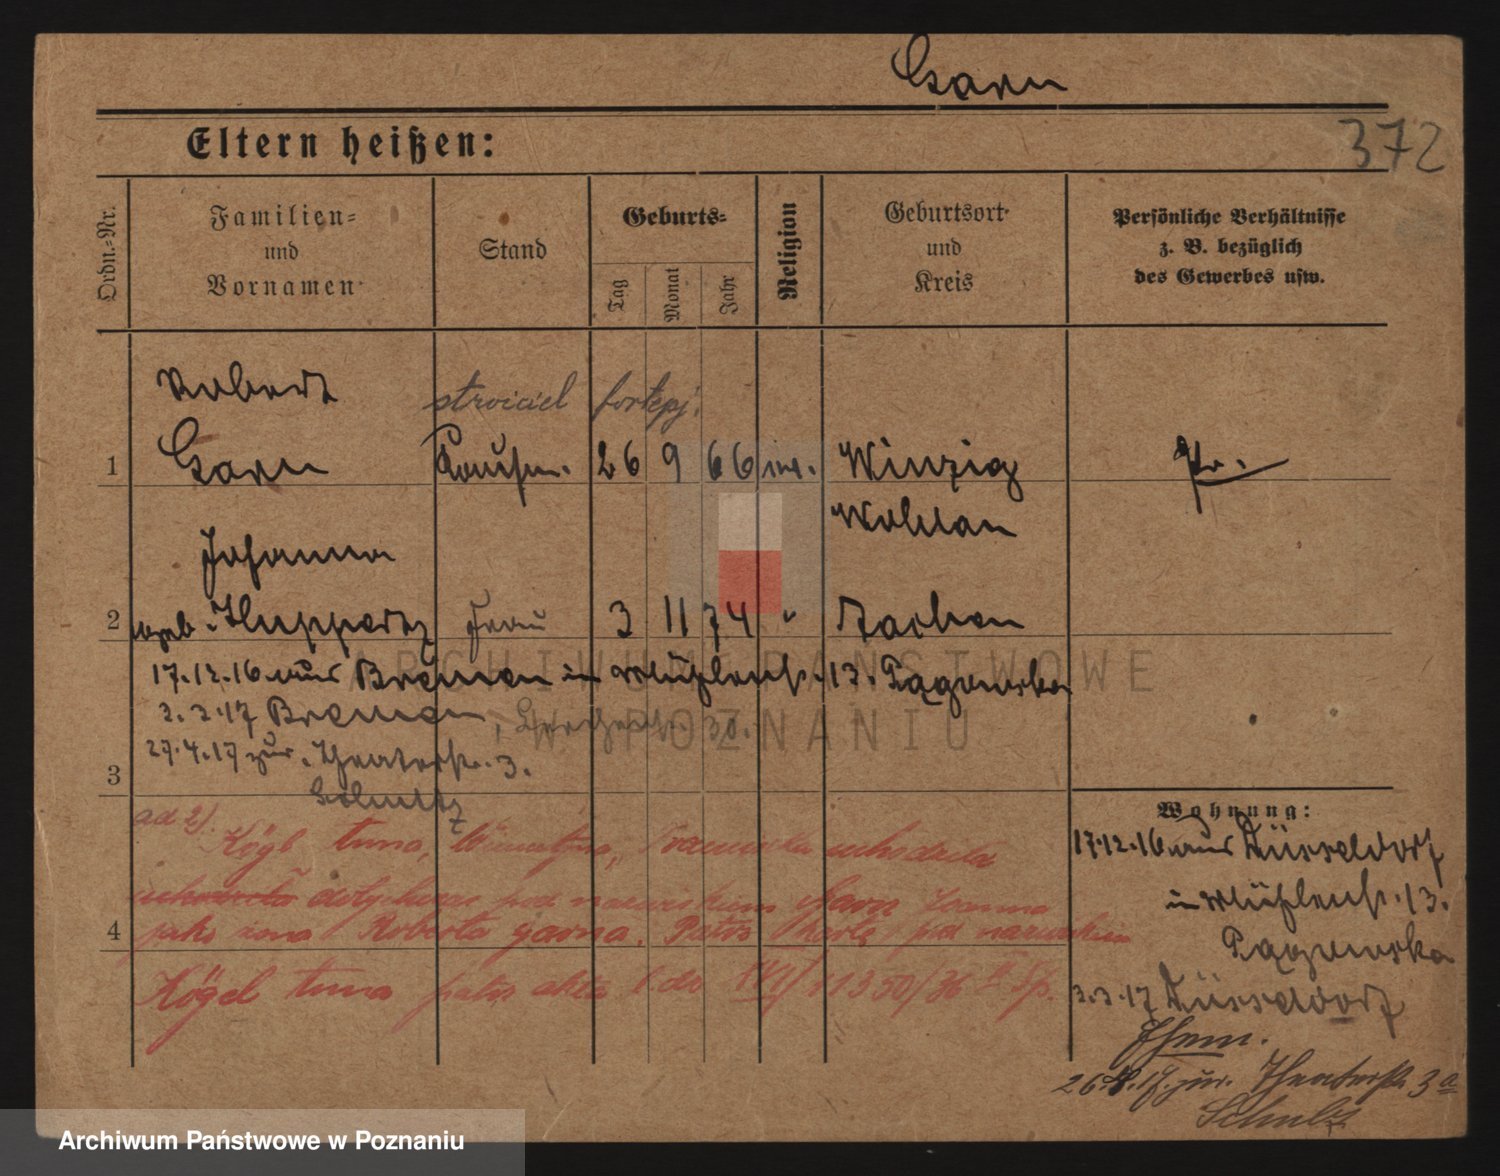 Garn
372
Eltern heißen:
Ordn.-Nr.
Familien-
und
Vornamen
Stand
Geburts-
Tag
Monat
Jahr
Religion
Geburtsort
und
Kreis
Persönliche Verhältnisse
z. B. bezüglich
des Gewerbes usw.
Robert
stroiciel fortepj.
1 Garn Kaufm. 26 9 66 Winzig Pr.
Wohlau
Johanna
2 geb. Huppertz Frau 3 11 74 " Aachen
17.12.16 aus Bremen in Mühlenstr. 13. Pagowska
3.3.17 Bremen, 30.
27.4.17 zur. Theaterstr. 3.
3
Schultz
ad 2).
Kögl
dotychczas pod nazwiskiem Garn Joanna
4 jako żona Roberta Garna. Patrz kartę pod nazwiskiem
Kögel patrz akta 11350/36
Wohnung:
17.12.16 aus Düsseldorf
in Mühlenstr. 13.
Pagowska
3.3.17 Düsseldorf
Ehem.
zur. Theaterstr. 3a
Schulz
ARCHIWUM PAŃSTWOWE
W POZNANIU
Archiwum Państwowe w Poznaniu